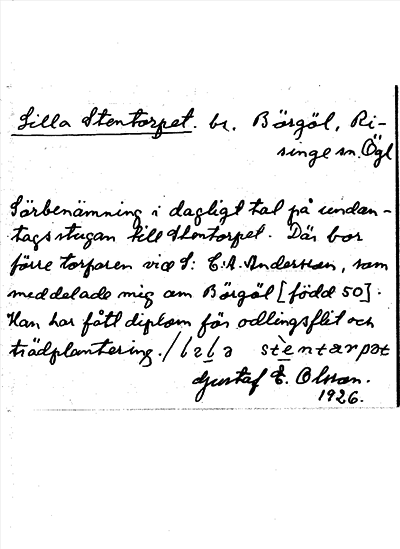 Lilla Stentorpet. br. Börgöl, Ri-
singe sn. Ögl
Särbenämning i dagligt tal på undan-
tagsstugan till Stentorpet. Där bor
förre torparen vid S: C.A. Andersson, som
meddelade mig om Börgöl [född 50].
Han har fått diplom för odlingsflit och
trädplantering. / lɩla stèntærpət
Gustaf E. Olsson.
1926.